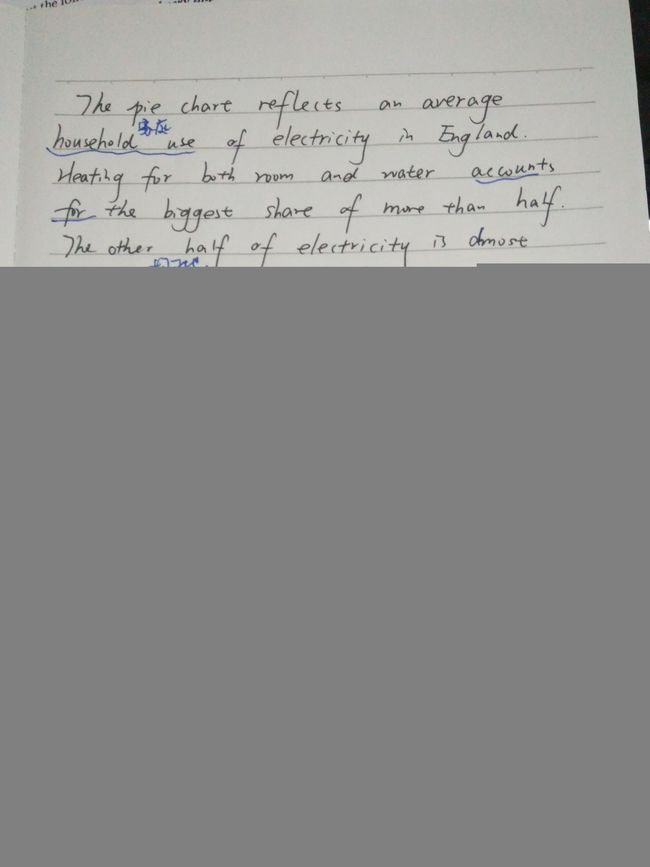 the
The pie chart reflects an average
家庭
household use of electricity in England.
Heating for both room and water accounts
for the biggest share of more than half.
The other half of electricity is almost